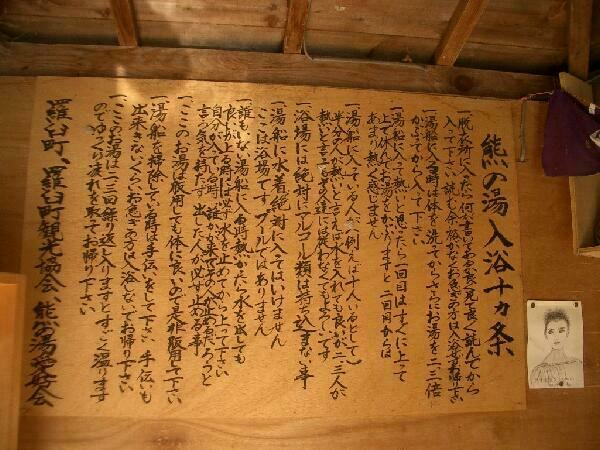 熊の湯入浴十ヵ条
一、脱衣所に入たら何か書いてあるか見て良く読んでから
入って下さい 読む余裕がなくお急ぎの方は入浴せずお帰下さい
一、湯船に入る時は体を洗ってからさらにお湯を二、三倍
かぶってから入して下さい
一、湯船に入って熱いと思ったら一回目はすぐに上って
上で休んでお湯をかぶりますと二回目からは
あまり熱く感じません
一、湯船に入っている人が(例えば十人いるとして)
半分の人が熱いと言えば水を入れても良いが二、三人が
熱いと言ても入る人達には迷わなくてもよろしいです
一、浴場には絶対にアルコール類は持ち込まない事
一、湯船に水着絶対に入てはいけません
ここは浴場です、プールではありません
一、誰もいない湯船に入る時熱かたら水を出しても
良いが上る時は必ず水を止めてから上って下さい
自分が入ている時に誰か来てその人が止めるだろうと
言う気を持たず 出した人が必ず止める事
一、このお湯は服用しても体に良いので是非服用して下さい
一、湯船を掃除している時は手伝いをして下さい 手伝いも
出来きないくらいお急ぎの方は入浴しないでお帰り下さい
一、このお湯は二、三回繰り返し入りますとすごく温ります
のでゆっくり疲れを取てお帰り下さい
羅臼町、羅臼町観光協会、熊の湯愛好会